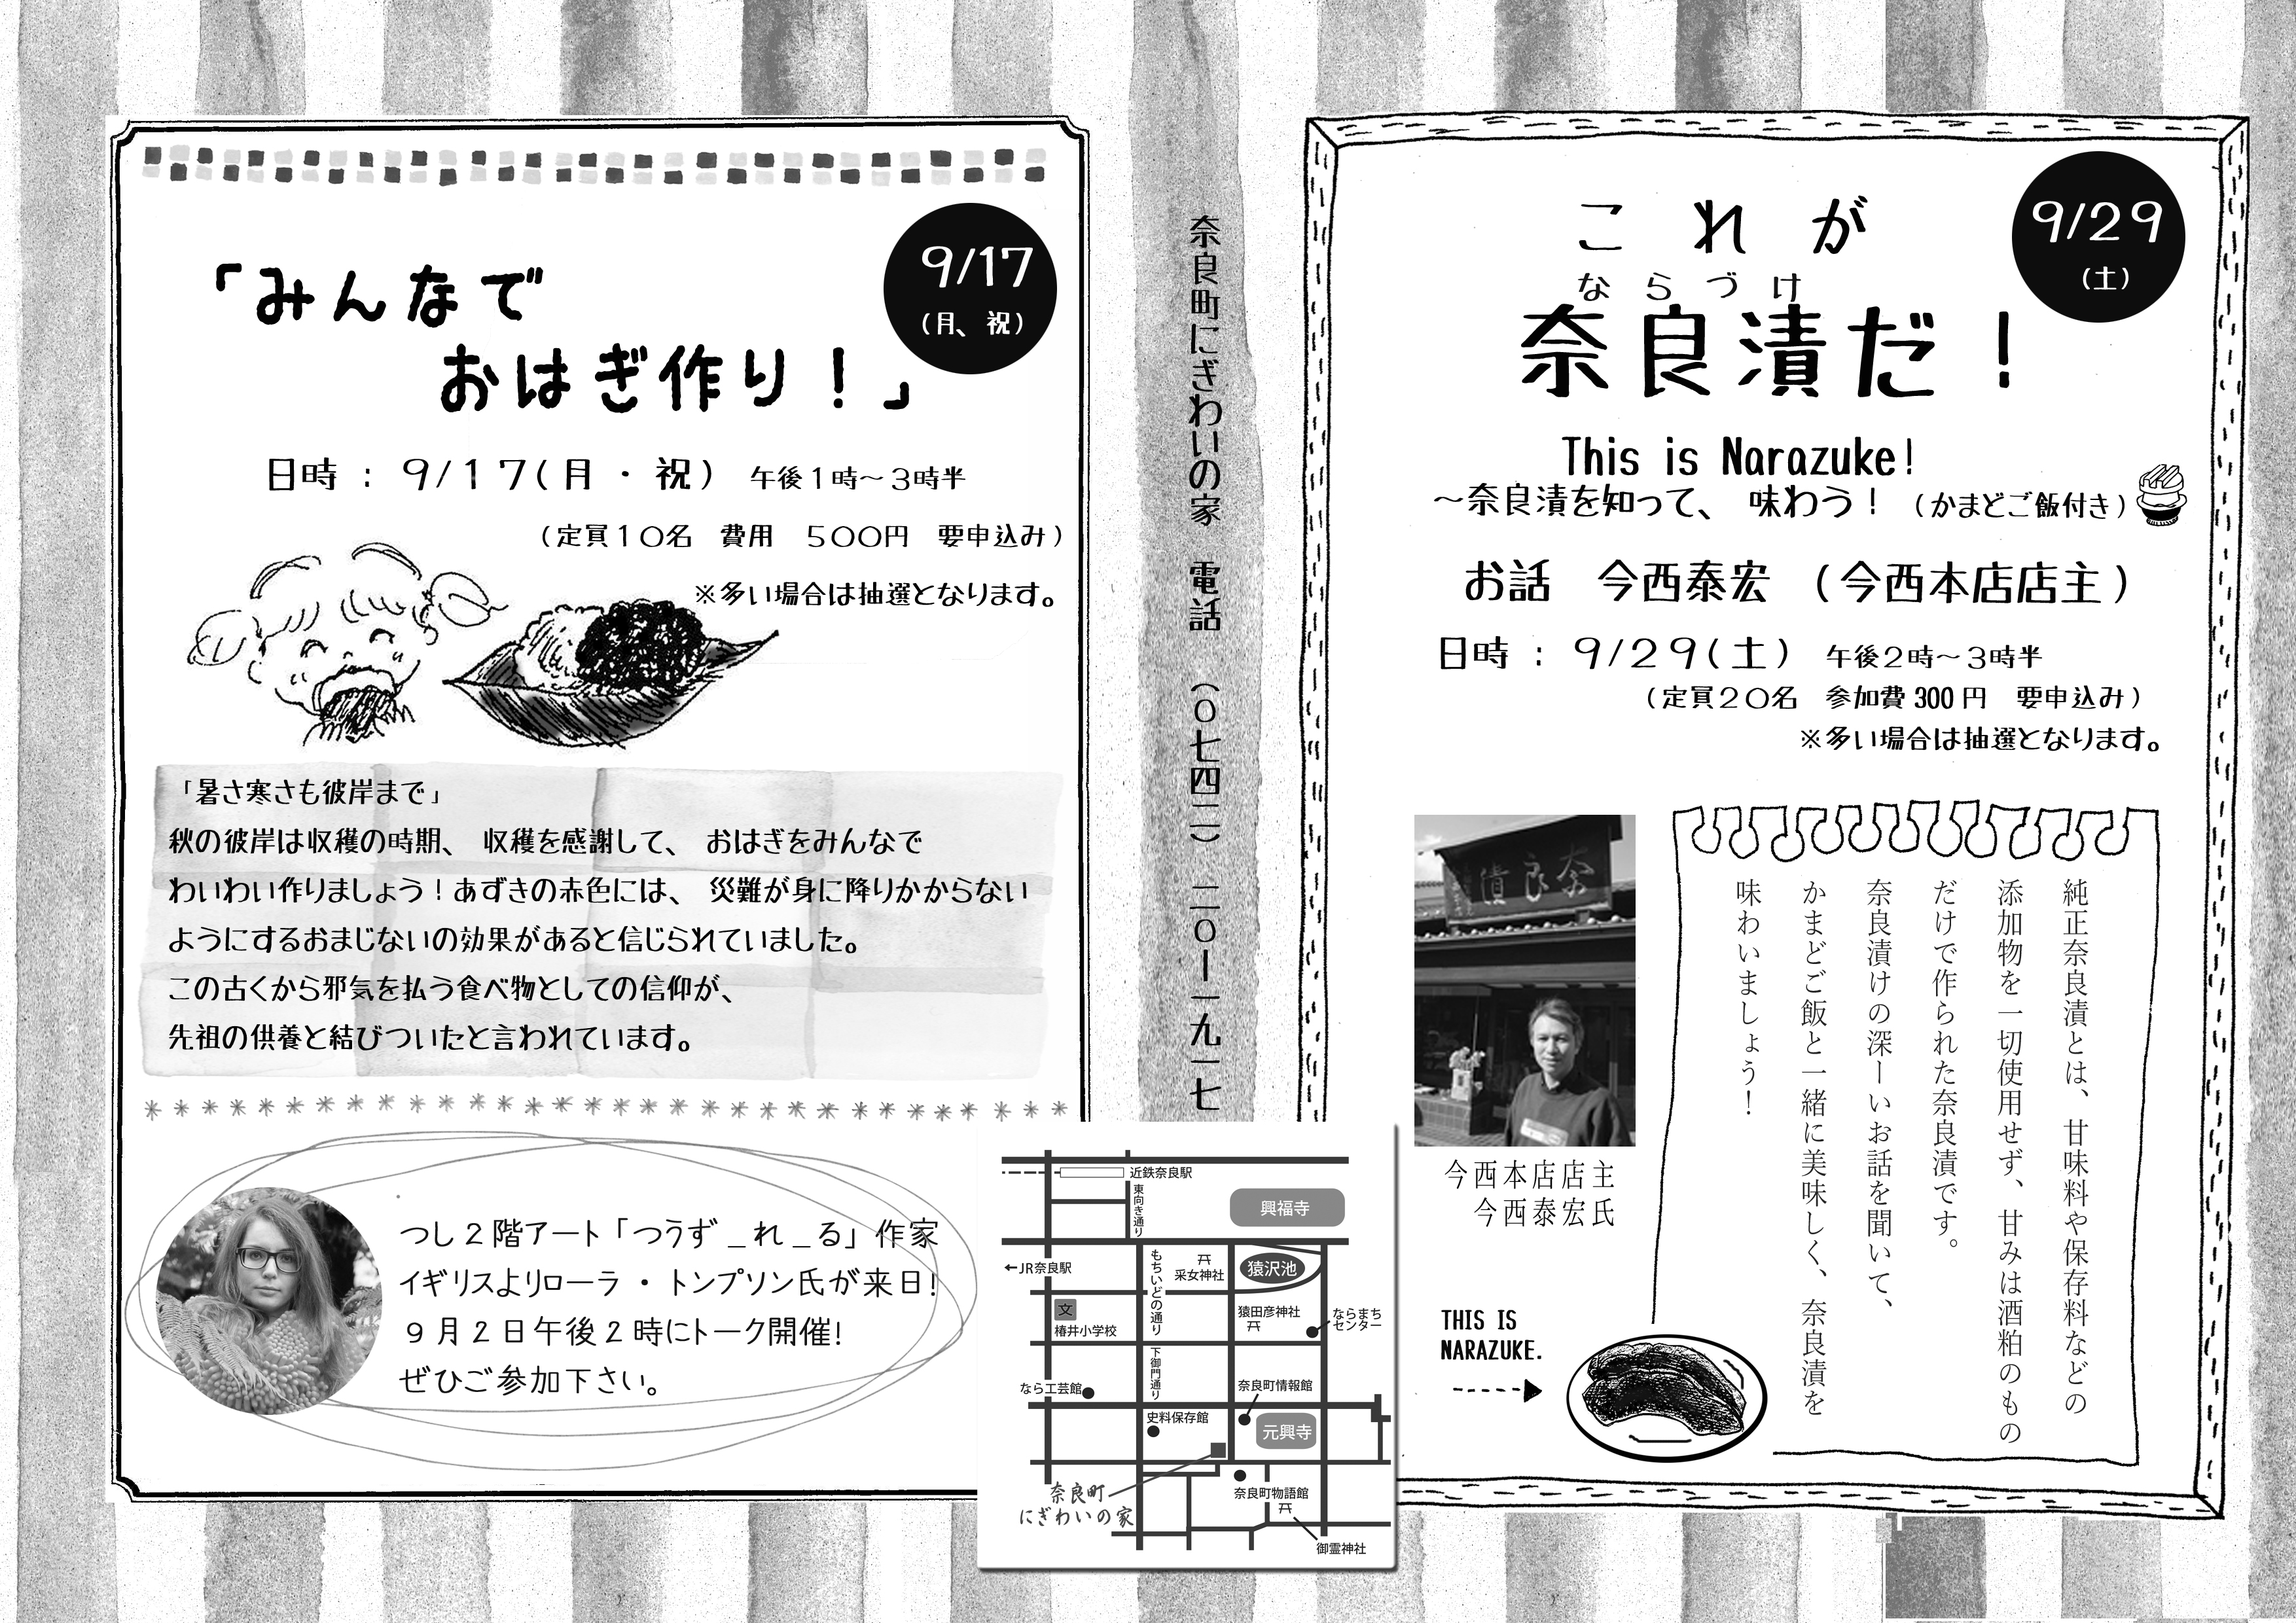 9/17
(月、祝)
「みんなで
おはぎ作り！」
日時：9/17(月・祝) 午後1時～3時半
(定員10名 費用 500円 要申込み)
※多い場合は抽選となります。
「暑さ寒さも彼岸まで」
秋の彼岸は収穫の時期、収穫を感謝して、おはぎをみんなで
わいわい作りましょう！あずきの赤色には、災難が身に降りかからない
ようにするおまじないの効果があると信じられていました。
この古くから邪気を払う食べ物としての信仰が、
先祖の供養と結びついたと言われています。
つし2階アート「つうず_れ_る」作家
イギリスよりローラ・トンプソン氏が来日!
9月2日午後2時にトーク開催!
ぜひご参加下さい。
奈良町にぎわいの家 電話 (〇七四二) 二〇ー一九一七
近鉄奈良駅
東向き通り
興福寺
←JR奈良駅
もちいどの通り
采女神社
猿沢池
文
椿井小学校
猿田彦神社
ならまち
センター
下御門通り
なら工芸館
奈良町情報館
史料保存館
元興寺
奈良町
にぎわいの家
奈良町物語館
御霊神社
9/29
(土)
これが
ならづけ
奈良漬だ！
This is Narazuke!
～奈良漬を知って、味わう！（かまどご飯付き）
お話 今西泰宏（今西本店店主）
日時：9/29(土) 午後2時～3時半
(定員20名 参加費300円 要申込み)
※多い場合は抽選となります。
奈良漬
今西本店店主
今西泰宏氏
純正奈良漬とは、甘味料や保存料などの
添加物を一切使用せず、甘みは酒粕のもの
だけで作られた奈良漬です。
奈良漬けの深ーいお話を聞いて、
かまどご飯と一緒に美味しく、奈良漬を
味わいましょう！
THIS IS
NARAZUKE.